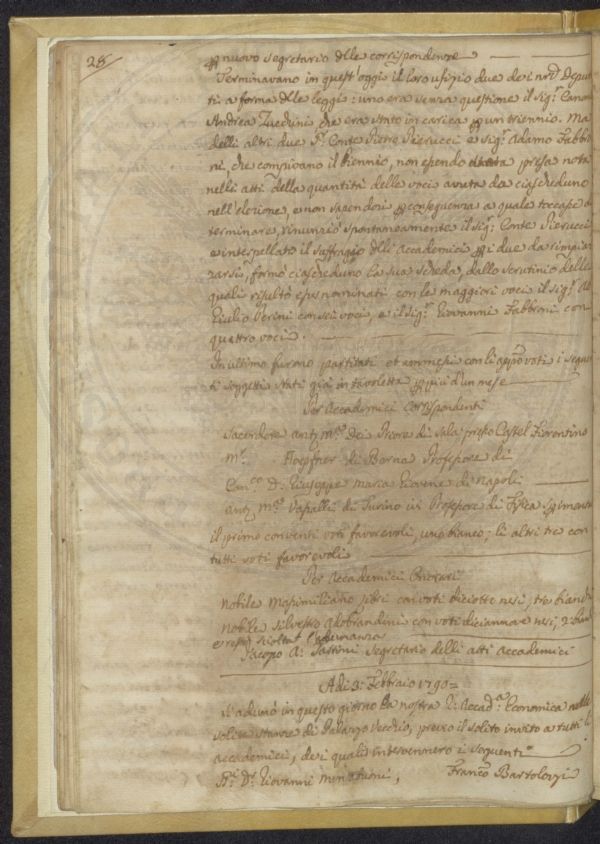 28
nuovo segretario dlle corrispondenze
Terminavano in quest'oggi il loro ufizio due dei nri Depu
ti a forma dlle leggi: uno era senza questione il Sigr Canon
Andrea Zucchini che era stato in carica un triennio. Ma
delli altri due Sr Conte Pietro Pierucci e Sigr Adamo Fabbro
ni, che compivano il biennio, non essendo presa nota
nelli atti della quantità delle voci avuta da ciascheduno
nell'elezione, e non sapendosi conseguenza a quale toccasse a
terminare, rinunziò spontaneamente il Sigr Conte Pierucci
e interpellato il suffragio dlli Accademici i due da rimpiaz
zarsi, formò ciascheduno la sua scheda, dallo scrutinio delle
quali risultò esser nominati con le maggiori voci il Sigr Ab
Giulio Perini con sei voci, e il Sigr Giovanni Fabbroni con
quattro voci.
In ultimo furono partitati et ammessi con li appo voti i segue
ti soggetti stati già in tavoletta più d'un mese
Per Accademici Corrispondenti
Sacerdote Anto Ma Dei Piore di Sala presso Castel Fiorentino
Mr. Hoepfner di Berna Professore di
Can.co D. Giuseppe Maria Giovene di Napoli
Anto Ma Vassalli di Torino ivi Professore di Fisica
il primo con venti voti favorevoli, uno bianco; li altri tre con
tutti voti favorevoli
Per Accademici Onorari
Nobile Massimiliano con voti diciotto neri, tre bianchi
Nobile Silvestro Aldobrandini con voti diciannove neri, 2 bian
e restò sciolta l'adunanza
Jacopo A: Sattini Segretario delli atti Accademici
Adi 3: Febbraio 1790 =
Si adunò in questo giorno la nostra Rl Accad.a Economica nelle
solite stanze di Palazzo Vecchio, previo il solito invito a tutti li
Accademici, dei quali intervennero i seguenti
Sr. Dr. Giovanni Menabuoni, Franco Bartolozzi